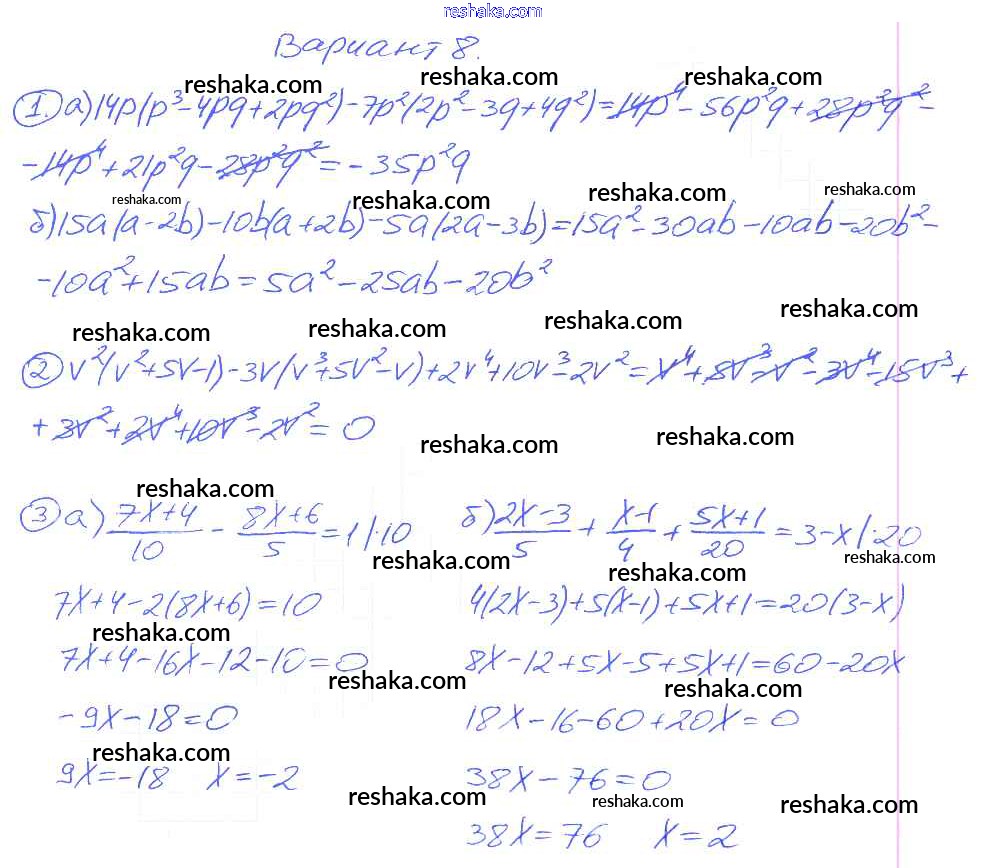 reshaka.com
Вариант 8.
reshaka.com reshaka.com reshaka.com
1. а) 14p(p³-4pq+2pq²)-7p²(2p²-3q+4q²)=14p⁴-56p²q+28p²q²-
-14p⁴+21p²q-28p²q²=-35p²q
reshaka.com reshaka.com reshaka.com reshaka.com
б) 15a(a-2b)-10b(a+2b)-5a(2a-3b)=15a²-30ab-10ab-20b²-
-10a²+15ab=5a²-25ab-20b²
reshaka.com reshaka.com reshaka.com reshaka.com
2 v²(v²+5v-1)-3v(v³+5v²-v)+2v⁴+10v³-2v²=v⁴+5v³-v²-3v⁴-15v³+
+3v²+2v⁴+10v³-2v²=0
reshaka.com reshaka.com
reshaka.com
3 а) (7x+4)/10 - (8x+6)/5 = 1 |·10
7x+4-2(8x+6)=10
reshaka.com
7x+4-16x-12-10=0
reshaka.com
-9x-18=0
reshaka.com
9x=-18 x=-2
reshaka.com
б) (2x-3)/5 + (x-1)/4 + (5x+1)/20 = 3-x |·20
reshaka.com reshaka.com reshaka.com
4(2x-3)+5(x-1)+5x+1=20(3-x)
8x-12+5x-5+5x+1=60-20x
reshaka.com
18x-16-60+20x=0
38x-76=0
reshaka.com reshaka.com
38x=76 x=2